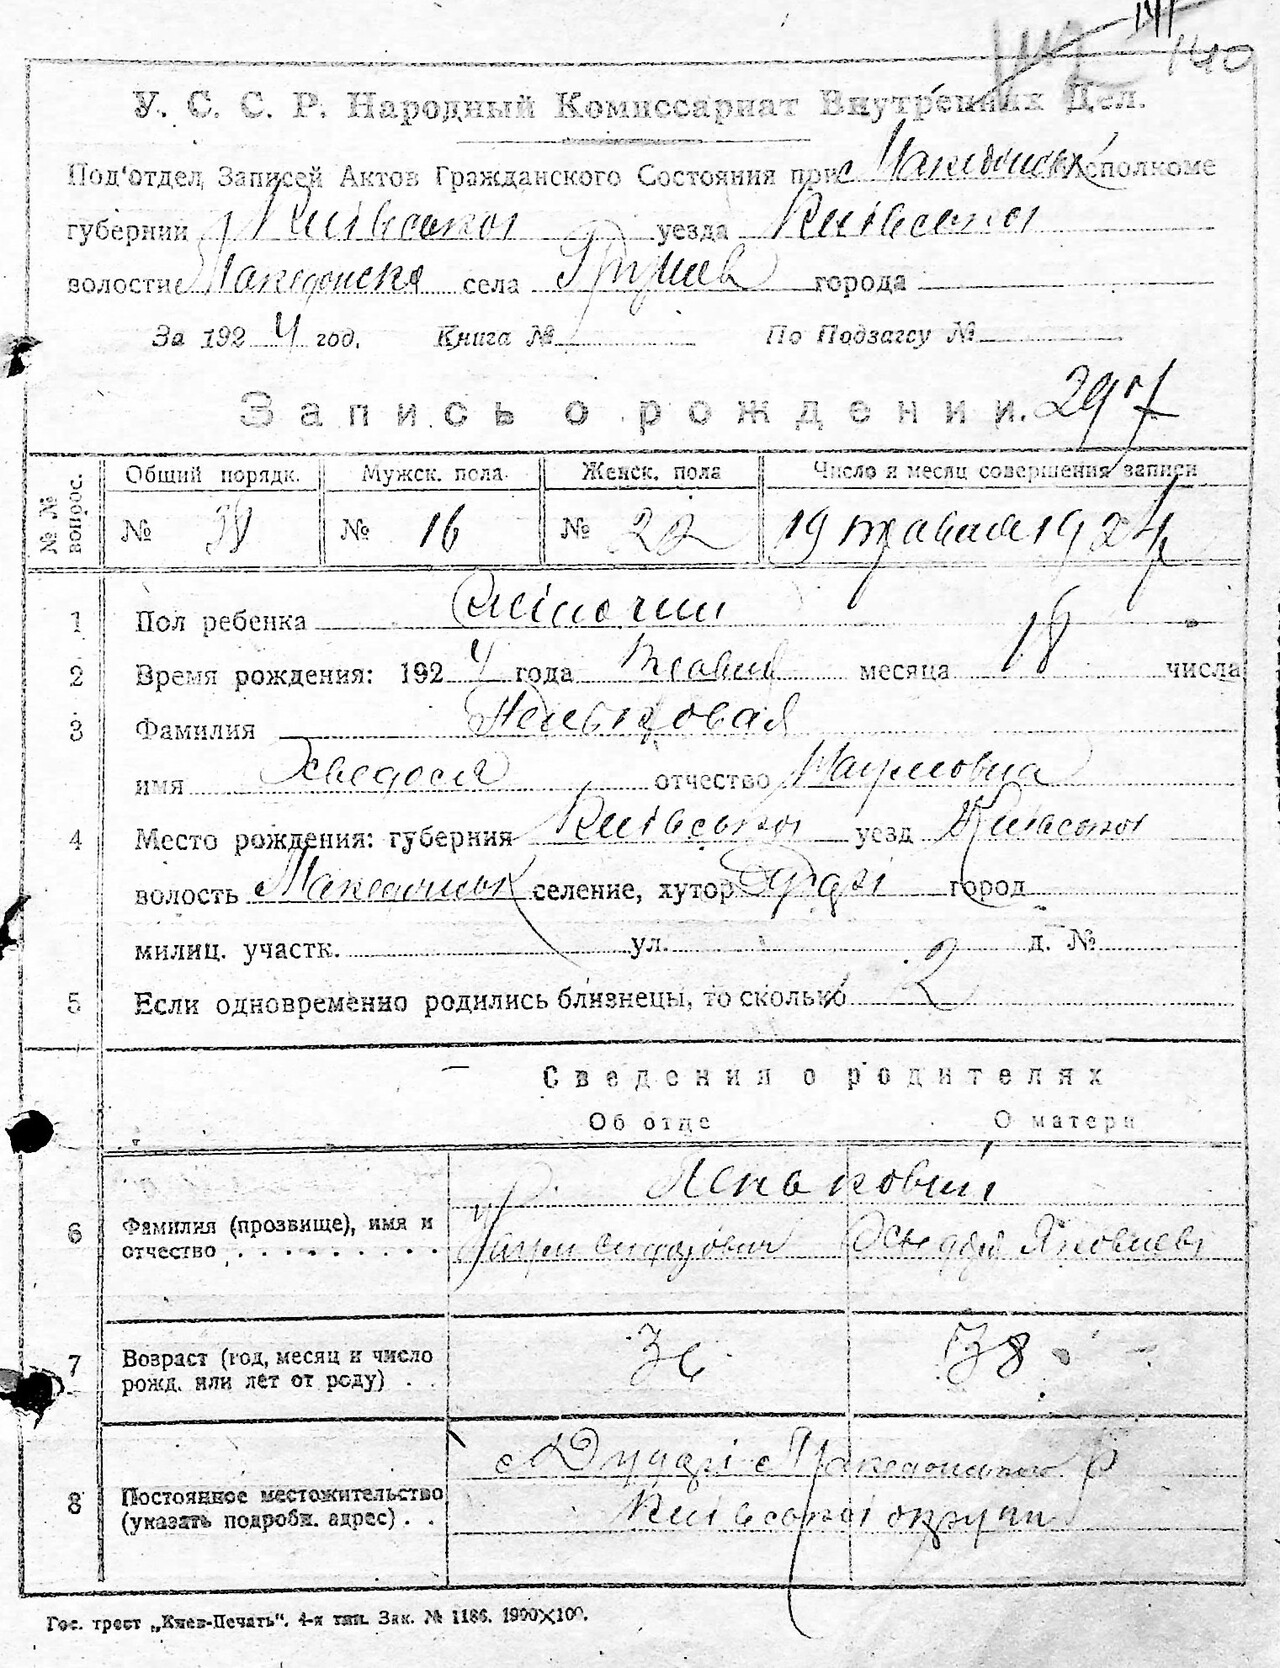 140
У. С. С. Р. Народный Комиссариат Внутренних Дел.
Под'отдел Записей Актов Гражданского Состояния при с Македонськ исполкоме
губернии Київської уезда Київської
волости Македонска села города
За 192 4 год. Книга № По Подзагсу №
Запись о рождении. 297
№ № вопрос. Общий порядк. Мужск. пола Женск. пола Число и месяц совершения записи
№ 38 № 16 № 22 19 травня 1924
1 Пол ребенка жіночий
2 Время рождения: 192 4 года травня месяца 18 числа
3 Фамилия
имя Хведося отчество Наумовна
4 Место рождения: губерния Київської уезд Київської
волость Македонськ селение, хутор Дударі город
милиц. участк. ул. д. №
5 Если одновременно родились близнецы, то сколько 2
Сведения о родителях
Об отце О матери
6 Фамилия (прозвище), имя и
отчество Наум Яковлев
7 Возраст (год, месяц и число 36 38
рожд. или лет от роду)
с Дударі Македонського Р
8 Постоянное местожительство Київської округи
(указать подробн. адрес)
Гос. трест „Киев-Печать". 4-я тип. Зак. № 1186. 1900×100.